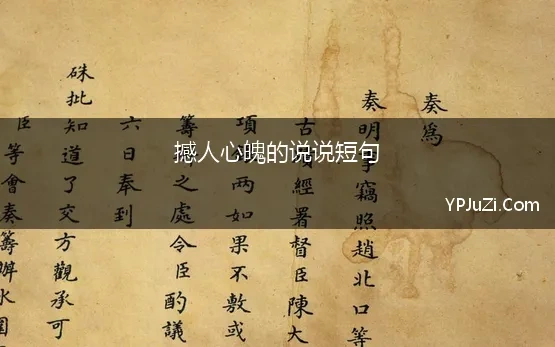 撼人心魄的说说短句
YPJuZi.Com
奏為
奏明事竊照趙北口等
古經署督臣陳大
項兩如果不敷或
籌之處令臣酌議
六日奉到
硃批知道了交方觀承可
臣等會奏籌水圍